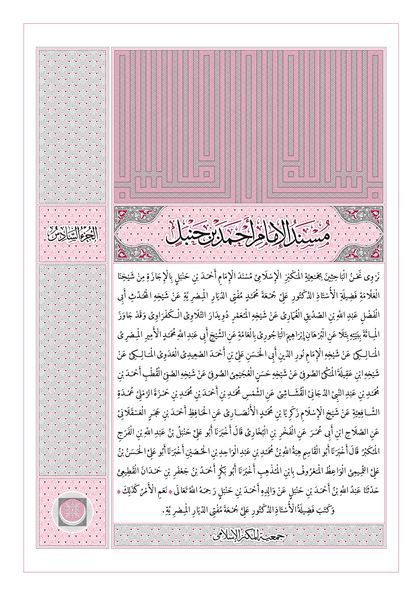 مُسْنَدُ الإِمَامِ أَحْمَدَ بْنِ حَنْبَلٍ
الجُزْءُ السَّادِسُ
نَرْوِى نَحْنُ الْبَاحِثِينَ بِجَمْعِيَّةِ الْمَكْنِزِ الإِسْلَامِىِّ مُسْنَدَ الإِمَامِ أَحْمَدَ بْنِ حَنْبَلٍ بِالإِجَازَةِ مِنْ شَيْخِنَا
الْعَلَّامَةِ فَضِيلَةِ الأُسْتَاذِ الدُّكْتُورِ عَلِىّ جُمْعَة مُحَمَّدٍ مُفْتِى الدِّيَارِ الْمِصْرِيَّةِ عَنْ شَيْخِهِ الْمُحَدِّثِ أَبِى
الْفَضْلِ عَبْدِ اللَّهِ بْنِ الصِّدِّيقِ الْغُمَارِىِّ عَنْ شَيْخِهِ الْمُعَمَّرِ دُوِيدَارَ التَّلَاوِىِّ الْكَفْرَاوِىِّ وَقَدْ جَاوَزَ
الْمِائَةَ بِيَقِينٍ عَنِ الْبُرْهَانِ إِبْرَاهِيمَ الْبَاجُورِىِّ بِالْعَامَّةِ عَنِ الشَّيْخِ أَبِى عَبْدِ اللَّهِ مُحَمَّدٍ الأَمِيرِ الْمِصْرِىِّ
الْمَالِكِىِّ عَنْ شَيْخِهِ الإِمَامِ نُورِ الدِّينِ أَبِى الْحَسَنِ عَلِىِّ بْنِ أَحْمَدَ الصَّعِيدِىِّ الْعَدَوِىِّ الْمَالِكِىِّ عَنْ
شَيْخِهِ ابْنِ عَقِيلَةَ الْمَكِّىِّ الصُّوفِىِّ عَنْ شَيْخِهِ حَسَنٍ الْعُجَيْمِىِّ الصُّوفِىِّ عَنْ شَيْخِهِ الصَّفِىِّ الْقُطْبِ أَحْمَدَ بْنِ
مُحَمَّدِ بْنِ عَبْدِ النَّبِىِّ الدَّجَانِىِّ الْقُشَاشِىِّ عَنِ الشَّمْسِ مُحَمَّدِ بْنِ أَحْمَدَ بْنِ مُحَمَّدِ بْنِ حَمْزَةَ الرَّمْلِىِّ عُمْدَةِ
الشَّافِعِيَّةِ عَنْ شَيْخِ الإِسْلَامِ زَكَرِيَّا بْنِ مُحَمَّدٍ الأَنْصَارِىِّ عَنِ الْحَافِظِ أَحْمَدَ بْنِ حَجَرٍ الْعَسْقَلَانِىِّ
عَنِ الصَّلَاحِ ابْنِ أَبِى عُمَرَ عَنِ الْفَخْرِ بْنِ الْبُخَارِىِّ قَالَ أَخْبَرَنَا أَبُو عَلِىٍّ حَنْبَلُ بْنُ عَبْدِ اللَّهِ بْنِ الْفَرَجِ
الْمُكَبِّرُ قَالَ أَخْبَرَنَا أَبُو الْقَاسِمِ هِبَةُ اللَّهِ بْنُ مُحَمَّدِ بْنِ عَبْدِ الْوَاحِدِ بْنِ الْحُصَيْنِ أَخْبَرَنَا أَبُو عَلِىٍّ الْحَسَنُ بْنُ
عَلِىٍّ التَّمِيمِىُّ الْوَاعِظُ الْمَعْرُوفُ بِابْنِ الْمُذْهِبِ أَخْبَرَنَا أَبُو بَكْرٍ أَحْمَدُ بْنُ جَعْفَرِ بْنِ حَمْدَانَ الْقَطِيعِىُّ
حَدَّثَنَا عَبْدُ اللَّهِ بْنُ أَحْمَدَ بْنِ حَنْبَلٍ عَنْ وَالِدِهِ أَحْمَدَ بْنِ حَنْبَلٍ رَحِمَهُ اللَّهُ تَعَالَى * نَعَمِ الأَمْرُ كَذَلِكَ *
وَكَتَبَ فَضِيلَةُ الأُسْتَاذِ الدُّكْتُورِ عَلِىّ جُمْعَة مُحَمَّدٍ مُفْتِى الدِّيَارِ الْمِصْرِيَّةِ .
جمعية المكنز الإسلامى